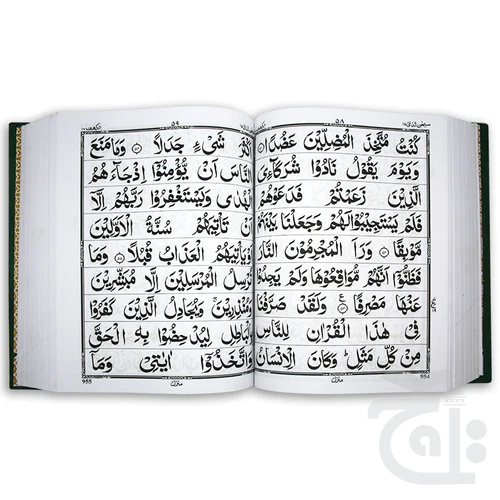 ۵۸
كُنْتُ مُتَّخِذَ الْمُضِلِّيْنَ عَضُدًا ﴿۵۱﴾
وَيَوْمَ يَقُوْلُ نَادُوْا شُرَكَآءِيَ
الَّذِيْنَ زَعَمْتُمْ فَدَعَوْهُمْ
فَلَمْ يَسْتَجِيْبُوْا لَهُمْ وَجَعَلْنَا بَيْنَهُمْ
مَّوْبِقًا ﴿۵۲﴾ وَرَاَ الْمُجْرِمُوْنَ النَّارَ
فَظَنُّوْۤا اَنَّهُمْ مُّوَاقِعُوْهَا وَلَمْ يَجِدُوْا
عَنْهَا مَصْرِفًا ﴿۵۳﴾ وَلَقَدْ صَرَّفْنَا
فِيْ هٰذَا الْقُرْاٰنِ لِلنَّاسِ
مِنْ كُلِّ مَثَلٍ ؕ وَكَانَ الْاِنْسَانُ
منزل
954
الكهف ۱۸
۵۹
اَكْثَرَ شَيْءٍ جَدَلًا ﴿۵۴﴾ وَمَا مَنَعَ
النَّاسَ اَنْ يُّؤْمِنُوْۤا اِذْ جَآءَهُمُ
الْهُدٰى وَيَسْتَغْفِرُوْا رَبَّهُمْ اِلَّاۤ
اَنْ تَاْتِيَهُمْ سُنَّةُ الْاَوَّلِيْنَ
اَوْ يَاْتِيَهُمُ الْعَذَابُ قُبُلًا ﴿۵۵﴾ وَمَا
نُرْسِلُ الْمُرْسَلِيْنَ اِلَّا مُبَشِّرِيْنَ
وَمُنْذِرِيْنَ ۚ وَيُجَادِلُ الَّذِيْنَ كَفَرُوْا
بِالْبَاطِلِ لِيُدْحِضُوْا بِهِ الْحَقَّ
وَاتَّخَذُوْۤا اٰيٰتِيْ وَمَاۤ
منزل
955